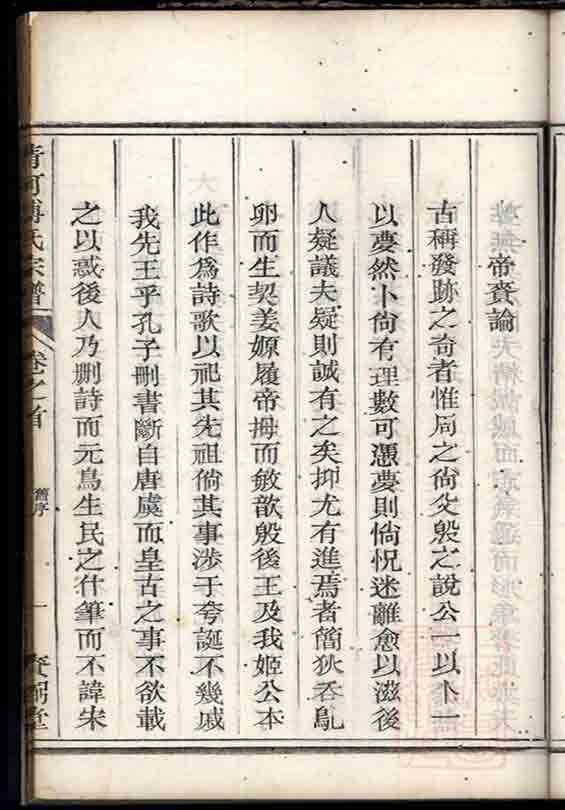 帝賚論
古稱發跡之奇者惟周之尙父殷之說公一以卜一
以夢然卜尙有理數可憑夢則惝怳迷離愈以滋後
人疑議夫疑則誠有之矣抑尤有進焉者簡狄吞鳦
卵而生契姜嫄履帝拇而敏歆殷後王及我姬公本
此作爲詩歌以祀其先祖倘其事涉于夸誕不幾戚
我先王乎孔子刪書斷自唐虞而皇古之事不欲載
之以惑後人乃刪詩而元鳥生民之什筆而不諱朱
清河傅氏宗譜 卷之首 舊序 一 賚弼堂